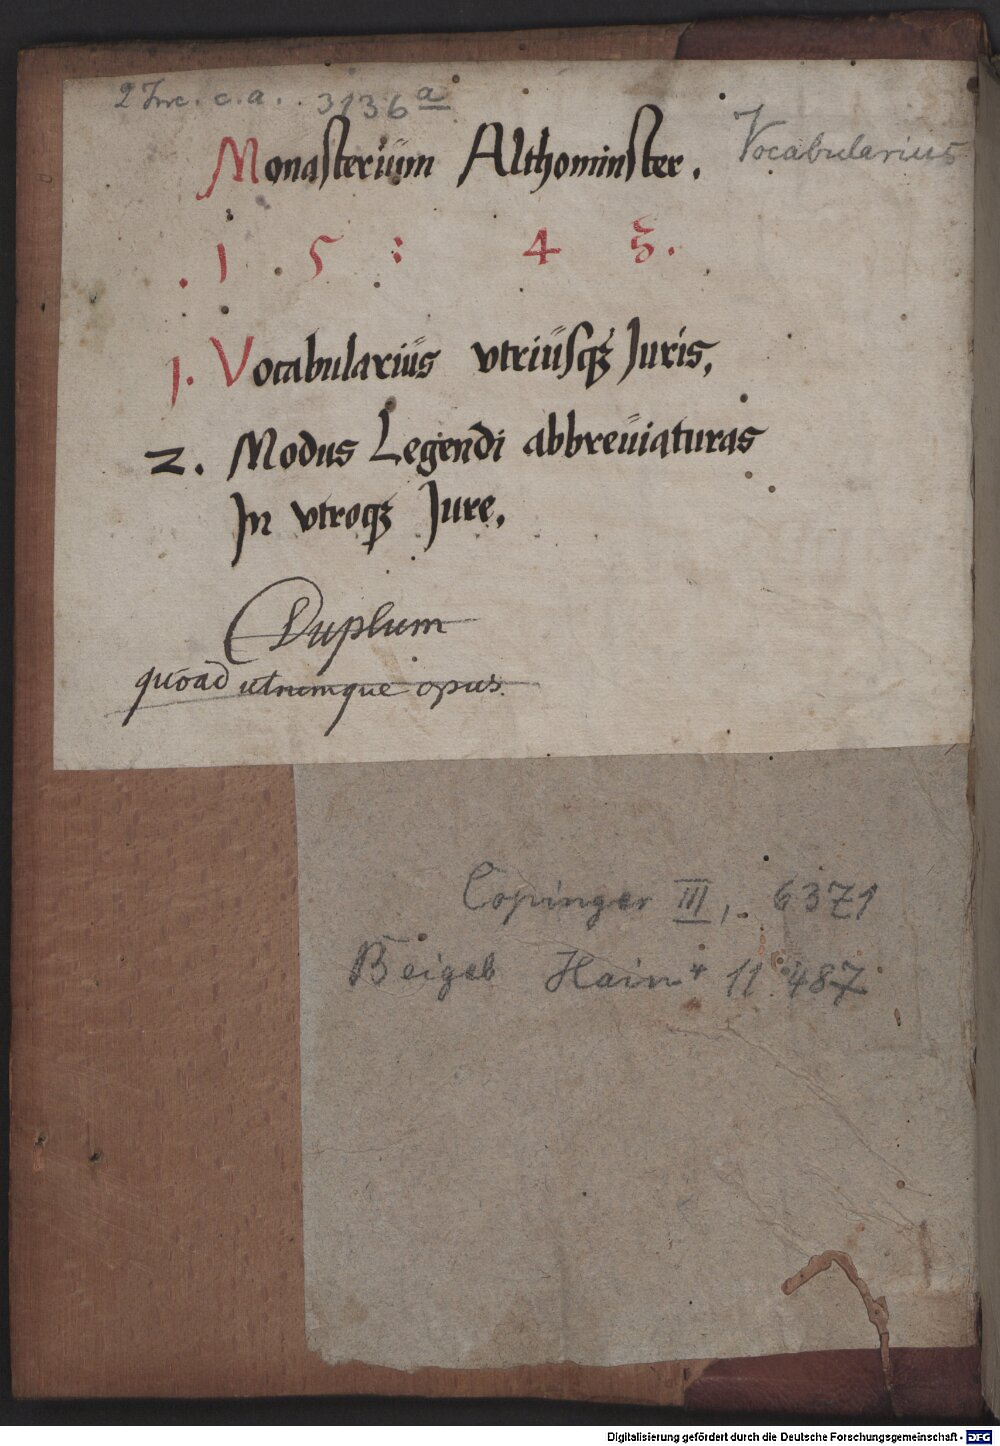 2 Inc. c. a. 3136 a
Vocabularius
Monasterium Althominster.
. 1 . 5 : 4 8 .
1. Vocabularius vtriusqꝫ Juris,
2. Modus Legendi abbreuiaturas
Jn vtroqꝫ Jure,
Duplum
quoad utrumque opus.
Copinger III, 6371
Beigeb Hain* 11 487
Digitalisierung gefördert durch die Deutsche Forschungsgemeinschaft - DFG